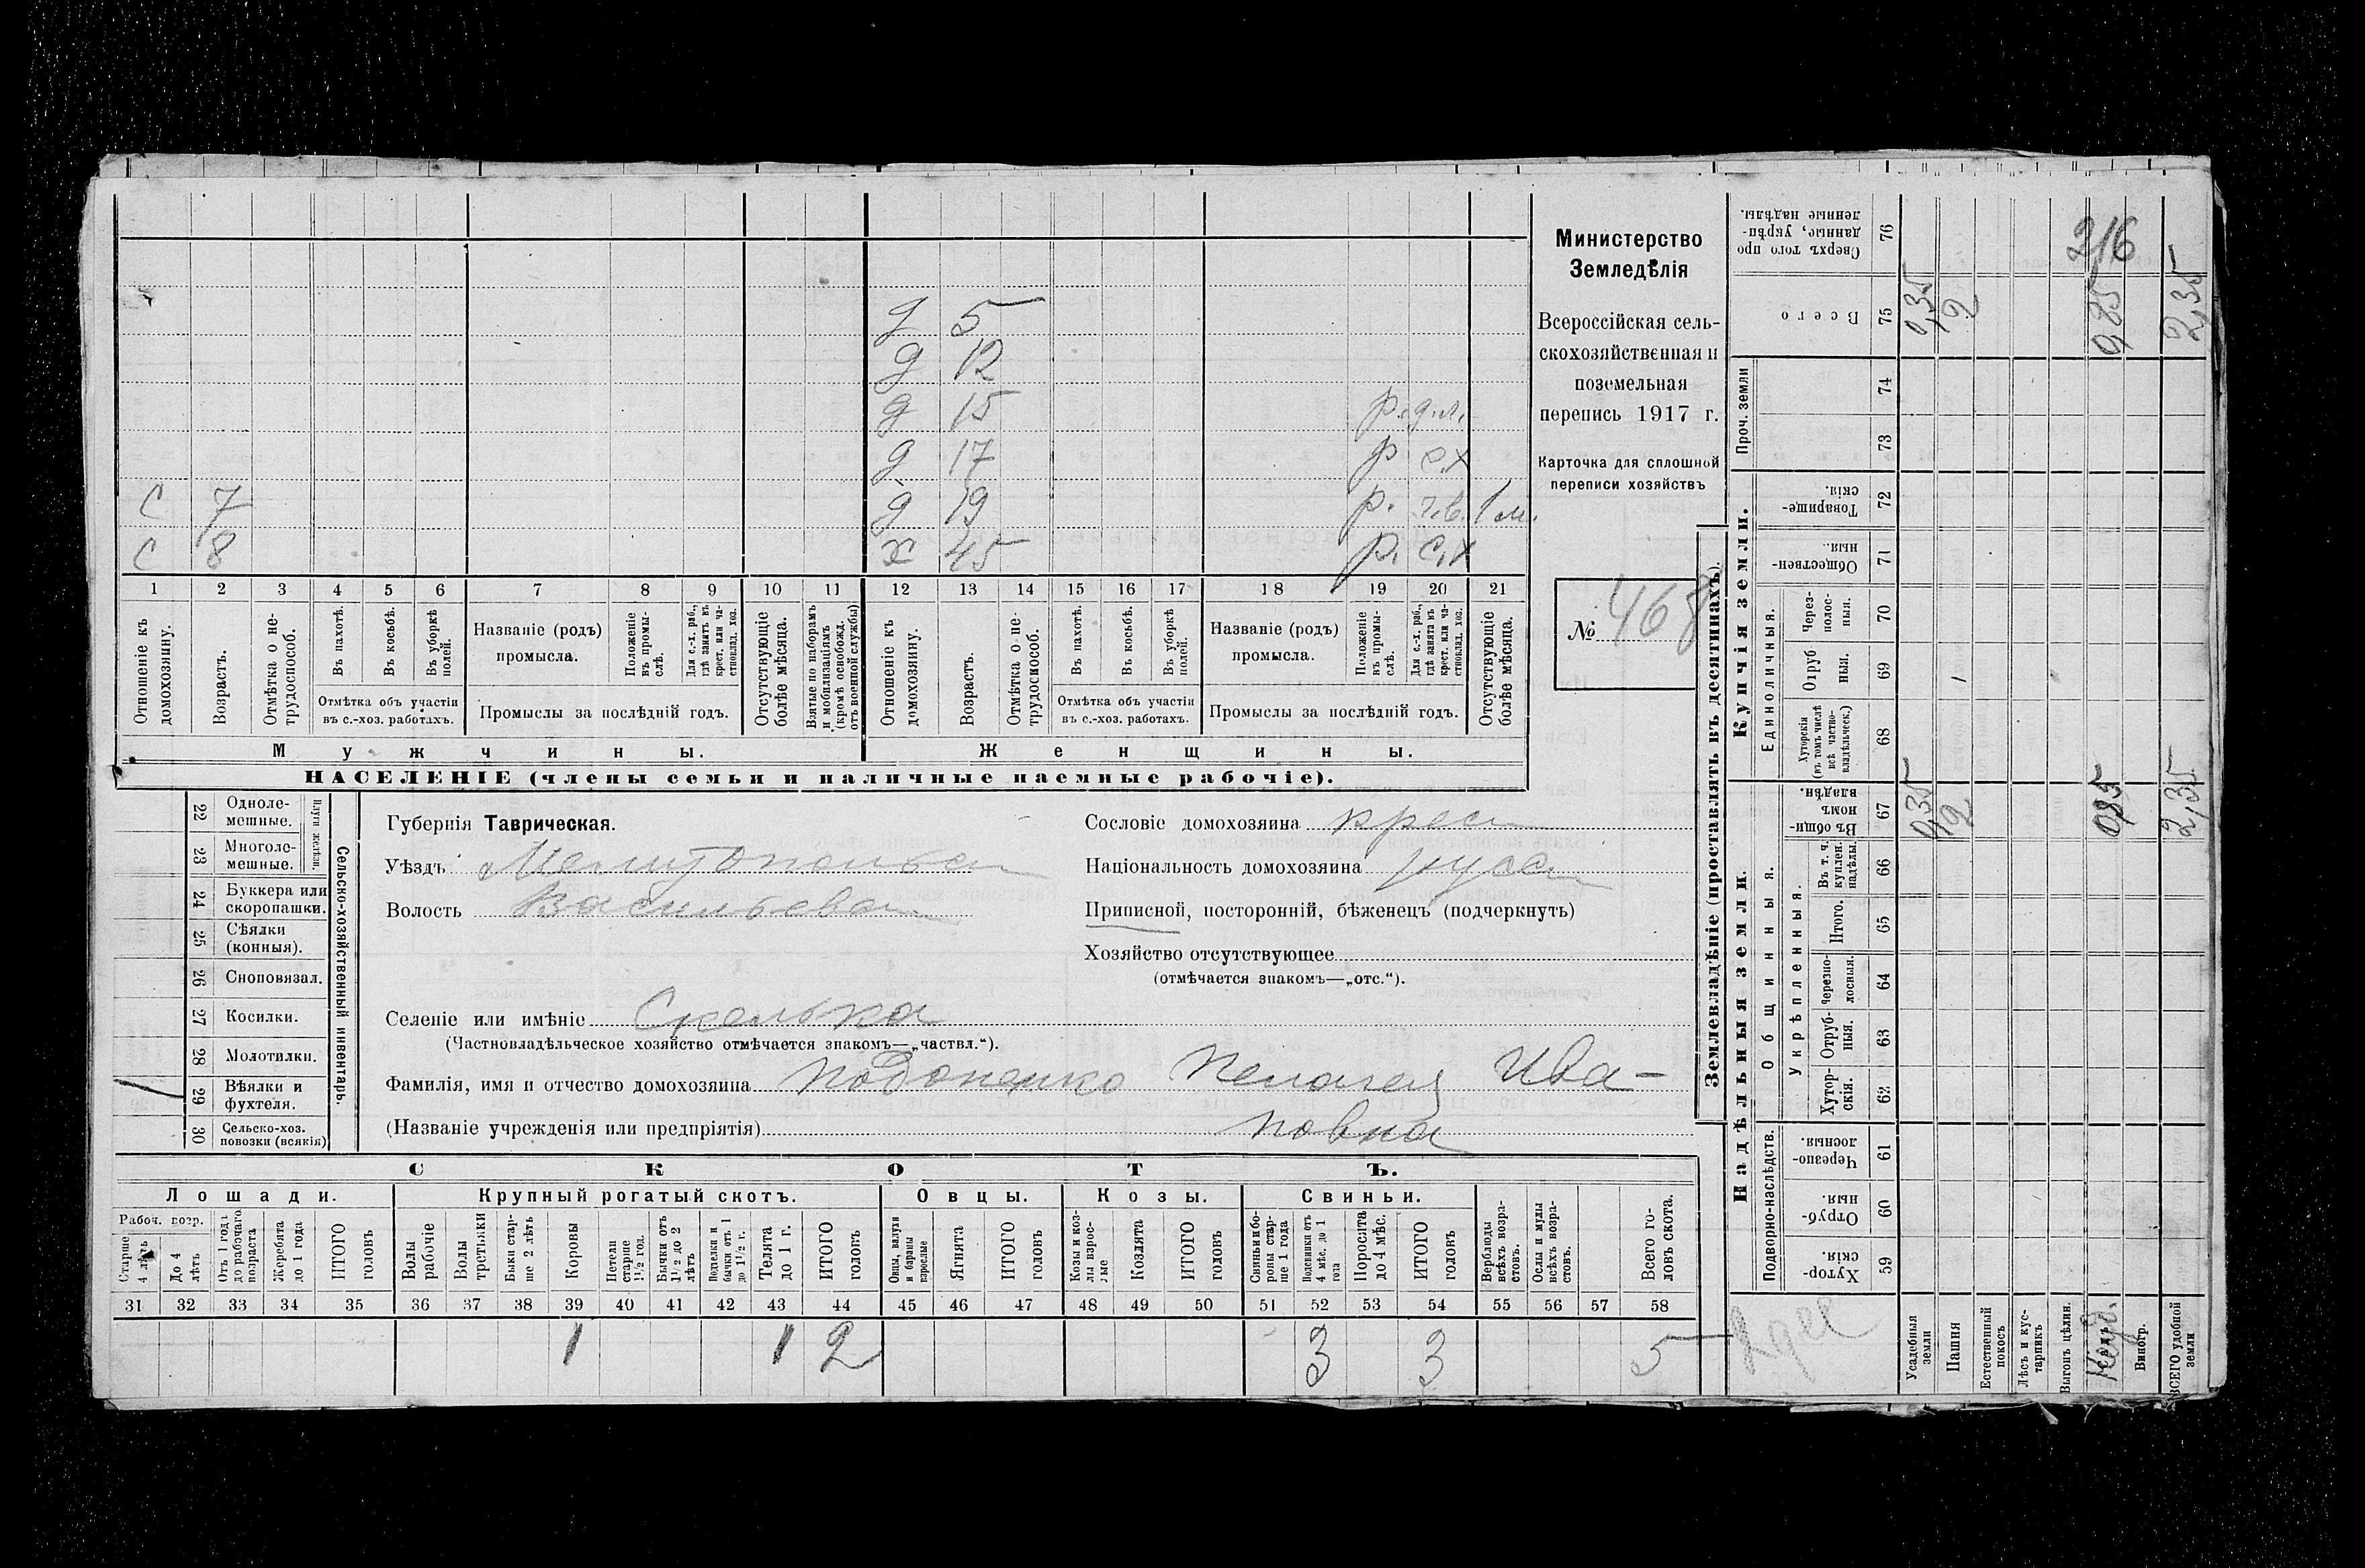 д 5
д 12
д 15 р. д.л.
д 17 р с.х
с 7 д 19 р. 1 м.
с 8 х 45 р. с.х
1 2 3 4 5 6 7 8 9 10 11 12 13 14 15 16 17 18 19 20 21
Отношеніе къ домохозяину.
Возрастъ.
Отмѣтка о нетрудоспособ.
Въ пахотѣ.
Въ косьбѣ.
Въ уборкѣ полей.
Отмѣтка объ участіи
въ с.-хоз. работахъ.
Названіе (родъ)
промысла.
Положеніе въ промыслѣ.
Для с.-х. раб., гдѣ занятъ въ крест. или частновлад. хоз.
Промыслы за послѣдній годъ.
Отсутствующіе болѣе мѣсяца.
Взятые по наборамъ и мобилизаціямъ (кромѣ освобожд. отъ военной службы)
Отношеніе къ домохозяину.
Возрастъ.
Отмѣтка о нетрудоспособ.
Въ пахотѣ.
Въ косьбѣ.
Въ уборкѣ полей.
Отмѣтка объ участіи
въ с.-хоз. работахъ.
Названіе (родъ)
промысла.
Положеніе въ промыслѣ.
Для с.-х. раб., гдѣ занята въ крест. или частновлад. хоз.
Промыслы за послѣдній годъ.
Отсутствующіе болѣе мѣсяца.
Мужчины. Женщины.
НАСЕЛЕНІЕ (члены семьи и наличные наемные рабочіе).
Министерство
Земледѣлія
Всероссійская сель-
скохозяйственная и
поземельная
перепись 1917 г.
Карточка для сплошной
переписи хозяйствъ
№ 468
Сельско-хозяйственный инвентарь.
Плуги желѣзн.
22 Однолемешные.
23 Многолемешные.
24 Буккера или скоропашки.
25 Сѣялки (конныя).
26 Сноповязал.
27 Косилки.
28 Молотилки.
1 29 Вѣялки и фухтеля.
30 Сельско-хоз. повозки (всякія)
Губернія Таврическая.
Уѣздъ Мелитопольск
Волость Васильевск
Селеніе или имѣніе Скелька
(Частновладѣльческое хозяйство отмѣчается знакомъ—„частвл.“).
Фамилія, имя и отчество домохозяина Пелагея Ива-
(Названіе учрежденія или предпріятія) новна
Сословіе домохозяина крес
Національность домохозяина русс
Приписной, посторонній, бѣженецъ (подчеркнуть)
Хозяйство отсутствующее
(отмѣчается знакомъ—„отс.“).
СКОТЪ.
Лошади. Крупный рогатый скотъ. Овцы. Козы. Свиньи.
Рабоч. возр.
Старше 4 лѣтъ
До 4 лѣтъ
Отъ 1 года до рабочаго возраста
Жеребята до 1 года
ИТОГО головъ
Волы рабочіе
Волы третьяки
Быки старше 2 лѣтъ
Коровы
Нетели старше 1½ год.
Бычки отъ 1½ до 2 лѣтъ
Подтелки и бычки отъ 1 до 1½ г.
Телята до 1 г.
ИТОГО головъ
Овцы, валухи и бараны взрослые
Ягнята
ИТОГО головъ
Козы и козлы взрослые
Козлята
ИТОГО головъ
Свиньи и боровы старше 1 года
Подсвинки отъ 4 мѣс. до 1 года
Поросята до 4 мѣс.
ИТОГО головъ
Верблюды всѣхъ возрастовъ.
Ослы и мулы всѣхъ возрастовъ.
Всего головъ скота.
31 32 33 34 35 36 37 38 39 40 41 42 43 44 45 46 47 48 49 50 51 52 53 54 55 56 57 58
1 1 2 3 3 5
Землевладѣніе (проставлять въ десятинахъ).
Сверхъ того проданные, укрѣпленные надѣлы. 76 216
Всего 75 0,35 2 0,85 2,35
Проч. земли
74
73
Купчія земли.
Товарищескія. 72
Общественныя. 71
Единоличныя.
Черезполосныя. 70
Отрубныя. 69
Хуторскія (въ томъ числѣ всѣ частновладѣльческ.) 68
Надѣльныя земли.
Общинныя.
Въ общинномъ владѣн. 67 2,35
Укрѣпленныя.
Въ т. ч. куплен. надѣлы. 66
Итого. 65
Черезполосныя. 64
Отрубныя. 63
Хуторскія. 62
Подворно-наслѣдств.
Черезполосныя. 61
Отрубныя. 60
Хуторскія. 59
Усадебныя земли
Пашня
Естественный покосъ
Лѣсъ и кустарникъ
Выгонъ цѣлин.
Виногр.
ВСЕГО удобной земли